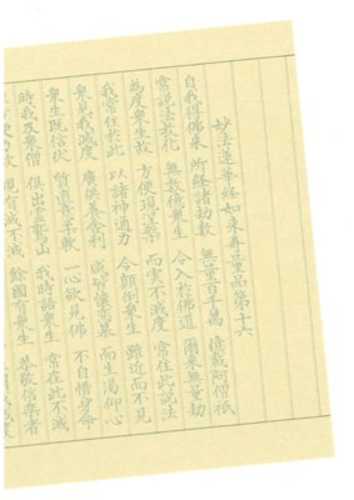 妙法蓮華經如来壽量品第十六
自我得佛来 所経諸劫数 無量百千萬 億載阿僧祇
常説法教化 無数億衆生 令入於佛道 爾来無量劫
為度衆生故 方便現涅槃 而実不滅度 常住此説法
我常住於此 以諸神通力 令顛倒衆生 雖近而不見
衆見我滅度 廣供養舎利 咸皆懐恋慕 而生渇仰心
衆生既信伏 質直意柔軟 一心欲見佛 不自惜身命
時我及衆僧 倶出霊鷲山 我時語衆生 常在此不滅
方便力故 現有滅不滅 餘國有衆生 恭敬信楽者